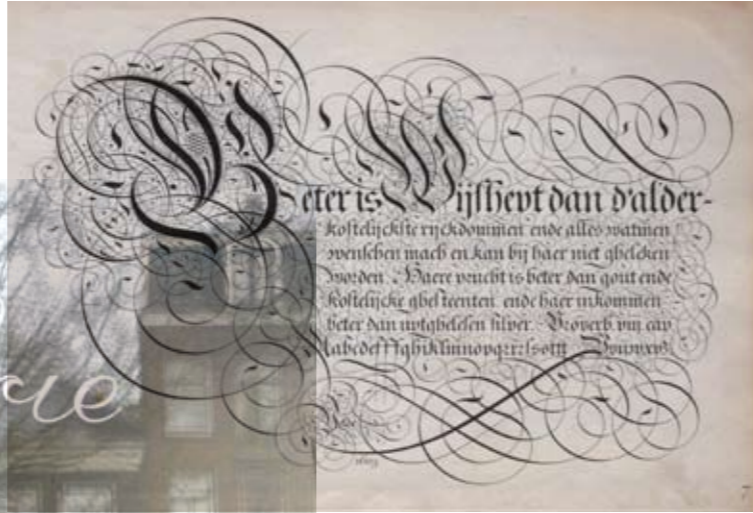 Beter is Wijsheyt dan d'alder-
kostelijckste rijckdommen ende alles watmen
wenschen mach en kan bij haer niet gheleken
worden. Haere vrucht is beter dan gout ende
kostelijcke ghesteenten ende haer inkommen
beter dan uytghelesen silver. Proverb. viij cap
re
7